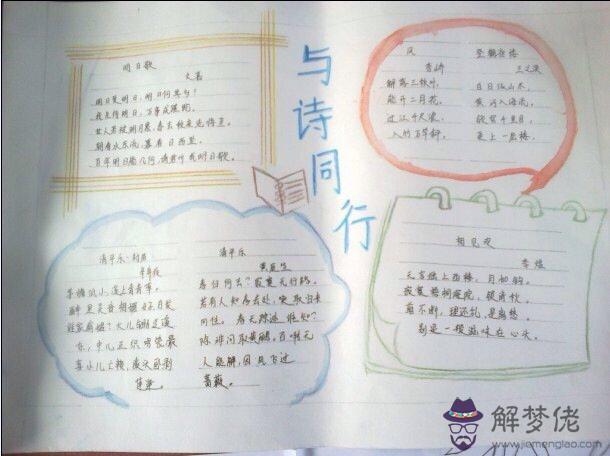 与诗同行
明日歌
文嘉
明日复明日，明日何其多！
我生待明日，万事成蹉跎。
世人若被明日累，春去秋来老将至。
朝看水东流，暮看日西坠。
百年明日能几何，请君听我明日歌。
风
李峤
解落三秋叶，
能开二月花。
过江千尺浪，
入竹万竿斜。
登鹳雀楼
王之涣
白日依山尽，
黄河入海流。
欲穷千里目，
更上一层楼。
清平乐·村居
辛弃疾
茅檐低小，溪上青青草。
醉里吴音相媚好，白发
谁家翁媪？大儿锄豆溪
东，中儿正织鸡笼。最
喜小儿亡赖，溪头卧剥
莲蓬。
清平乐
黄庭坚
春归何处？寂寞无行路。
若有人知春去处，唤取归来
同住。春无踪迹谁知？
除非问取黄鹂。百啭无
人能解，因风飞过
蔷薇。
相见欢
李煜
无言独上西楼，月如钩。
寂寞梧桐深院，锁清秋。
剪不断，理还乱，是离愁。
别是一般滋味在心头。
解梦佬
www.jiemenglao.com